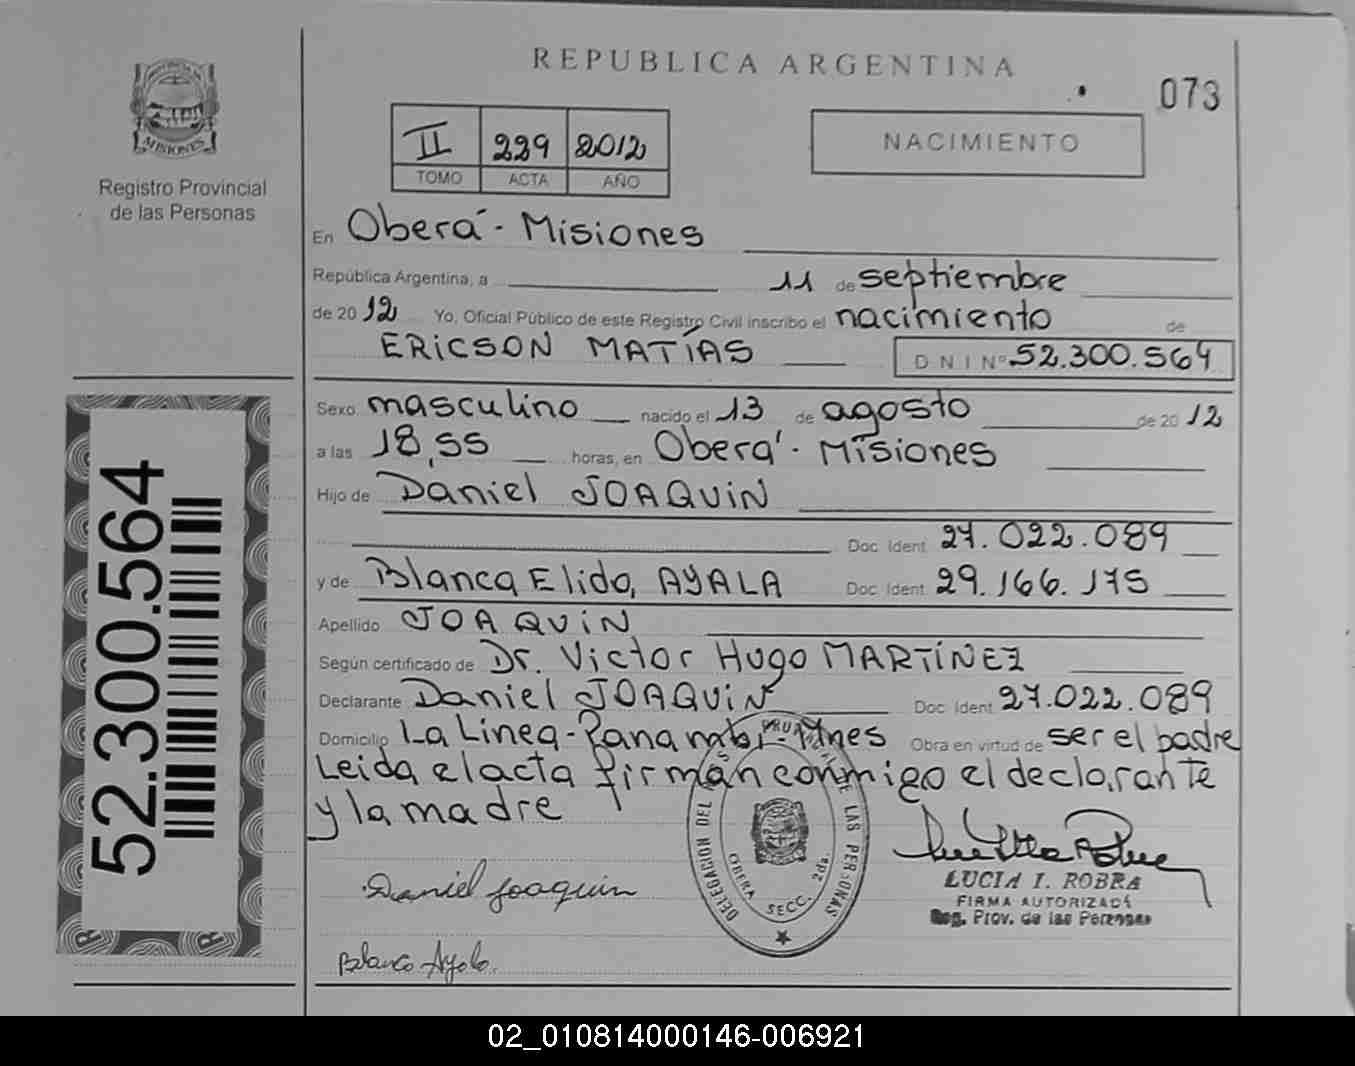 REPUBLICA ARGENTINA
073
MISIONES
Registro Provincial
de las Personas
II 229 2012
TOMO ACTA AÑO
NACIMIENTO
En Oberá - Misiones
República Argentina, a 11 de septiembre
de 2012 Yo, Oficial Público de este Registro Civil inscribo el nacimiento de
ERICSON MATÍAS DNI Nº 52.300.564
Sexo masculino nacido el 13 de agosto de 2012
a las 18,55 horas, en Oberá - Misiones
Hijo de Daniel JOAQUIN
Doc Ident 27.022.089
y de Blanca Elida, AYALA Doc Ident 29.166.175
Apellido JOAQUIN
Según certificado de Dr. Victor Hugo MARTÍNEZ
Declarante Daniel JOAQUIN Doc Ident 27.022.089
Domicilio La Linea - Panambí - Mnes Obra en virtud de ser el padre
Leida el acta firman conmigo el declarante
y la madre
DELEGACION DEL LAS PERSONAS
OBERA SECC. 2da.
Daniel Joaquin
Blanca Ayala
LUCIA I. ROBRA
FIRMA AUTORIZADA
Reg. Prov. de las Personas
52.300.564
02_010814000146-006921